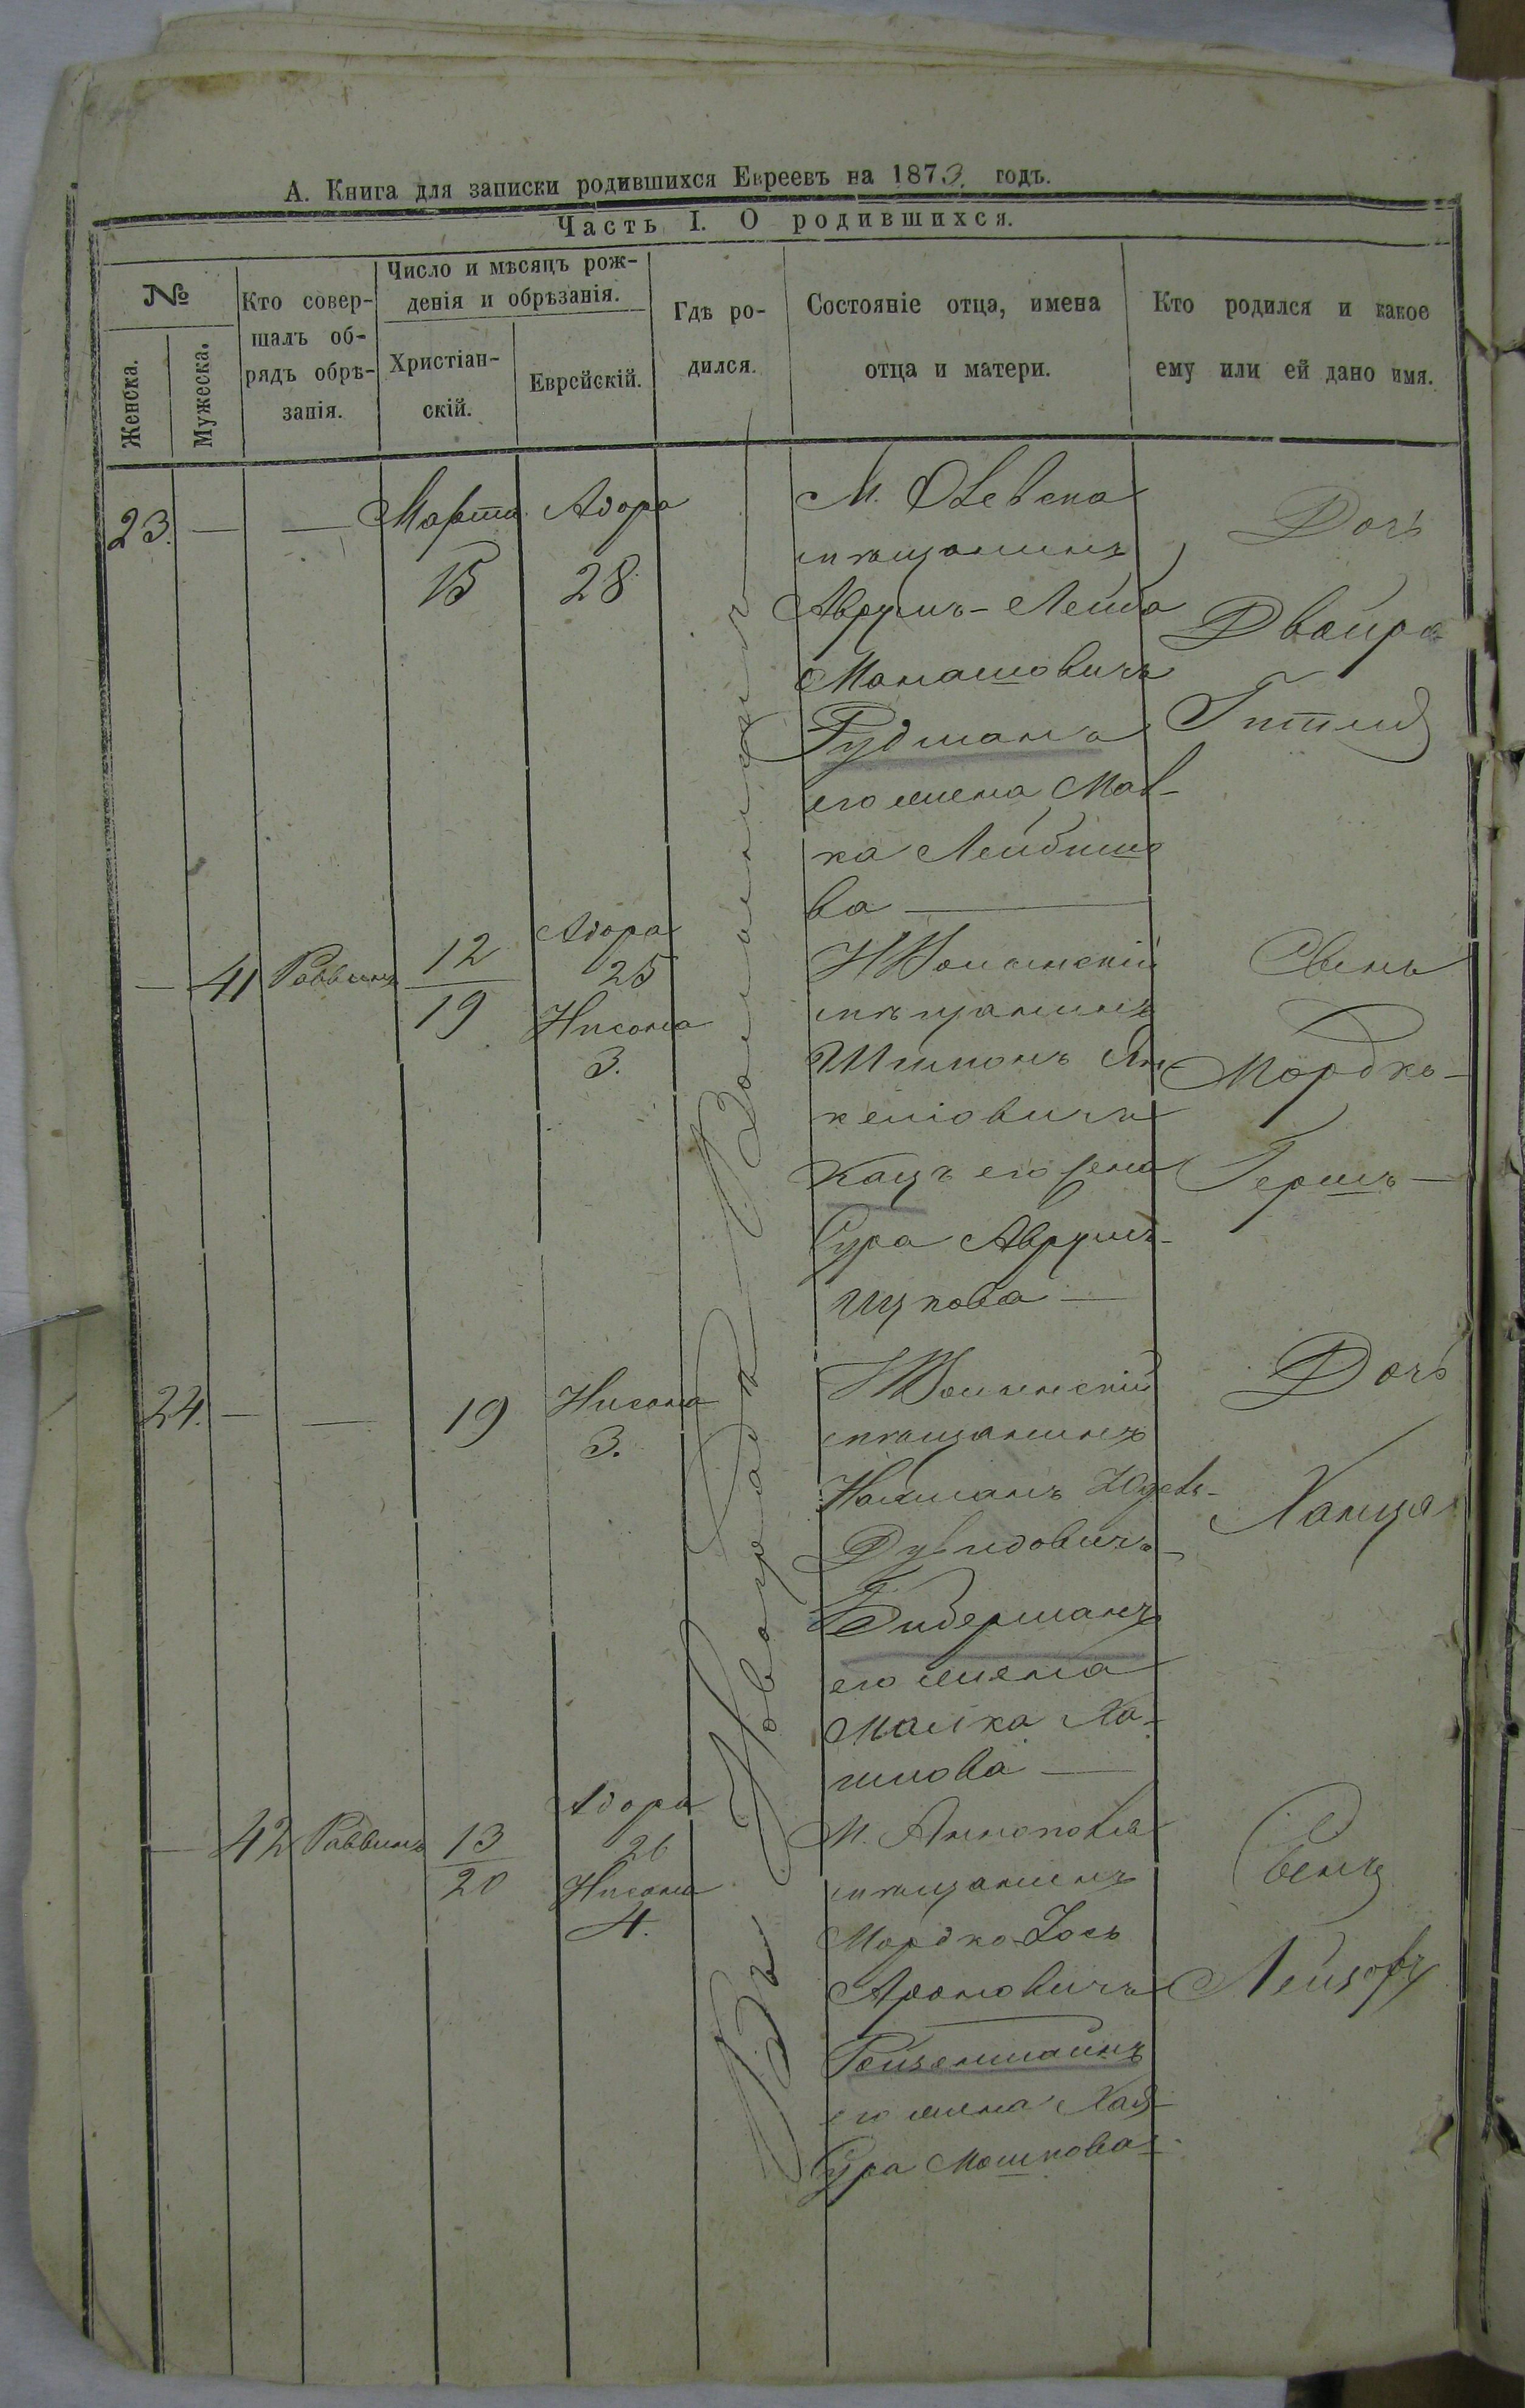 А. Книга для записки родившихся Евреевъ на 1873. годъ.
Часть I. О родившихся.
№
Женска.
Мужеска.
Кто совер-
шалъ об-
рядъ обрѣ-
занія.
Число и мѣсяцъ рож-
денія и обрѣзанія.
Христіан-
скій.
Еврейскій.
Где ро-
дился.
Состояніе отца, имена
отца и матери.
Кто родился и какое
ему или ей дано имя.
Въ Новоградъ Волынскѣ
23. — — Марта 15 Адора 28
М. Олевска
мѣщанинъ
Аврумъ-Лейба
Манашовичъ
Рудманъ
его жена Мал-
ка Лейбишо
ва —
Дочь
Двойра
Гитля
— 41 Раввинъ 12 Адора 25
19 Нисона 3.
НВолынскій
мѣщанинъ
Шимонъ Ян-
келіовичъ
Кацъ его жена
Сура Аврумъ-
Ицкова —
Сынъ
Мордко-
Гершъ —
24. — — 19 Нисона 3.
НВолынскій
мѣщанинъ
Нахманъ Юдель-
Дувидовичъ
Бидерманъ
его жена
Малка Ха-
имова —
Дочь
Ханця
— 42 Раввинъ 13 Адора 26
20 Нисона 4.
М. Аннополя
мѣщанинъ
Мордко Іось
Ароновичъ
Гойзенштайнъ
его жена Хая-
Сура Мошкова
Сынъ
Лейзоръ